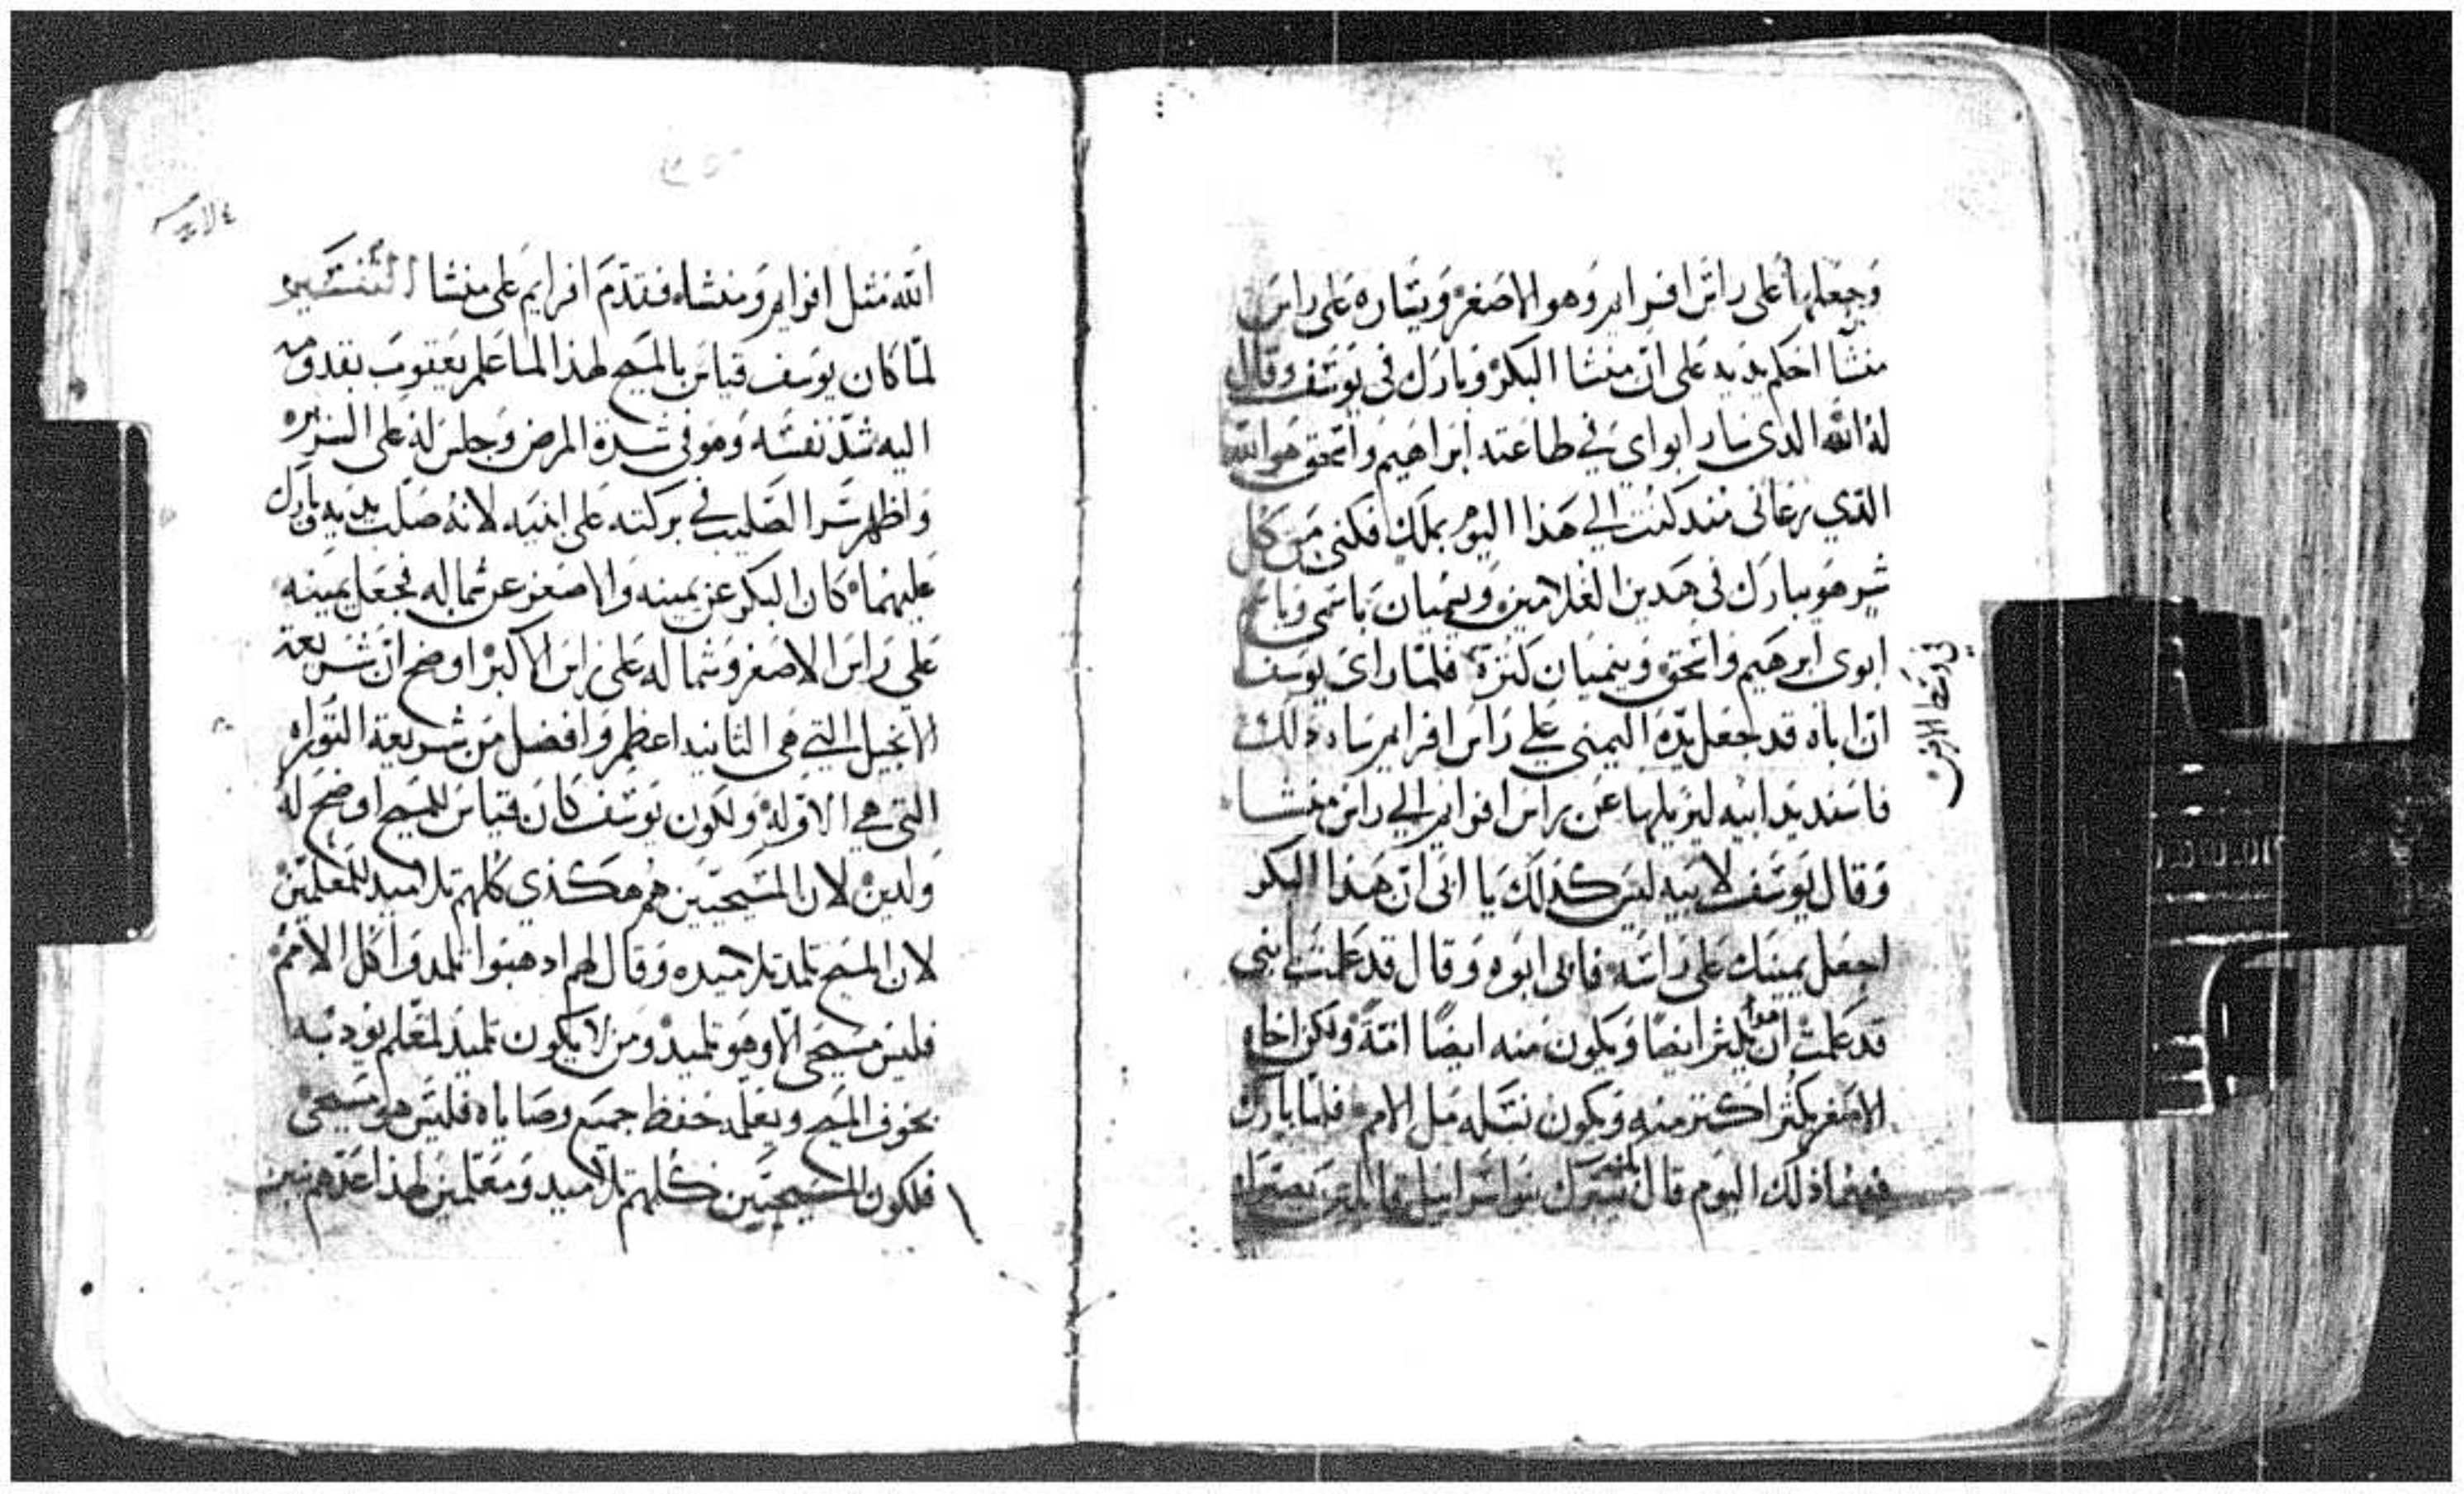 وجعلها على راس افرايم وهو الاصغر ويساره على راس
منشا احكم يديه على ان منشا البكر وبارك في يوسف وقال
له الله الذي سار ابواي في طاعته ابراهيم واسحق هو الله
الذي رعاني منذ كنت الي هذا اليوم بملك فكني من كل
شر هو يبارك في هدين الغلامين ويسميان باسمي وباسم
ابوي ابرهيم واسحق وينميان كثرة فلما راى يوسف
ان اباه قد جعل يده اليمني علي راس افرايم ساه ذلك
فاسند يد ابيه ليزيلها عن راس افرايم الي راس منشا
وقال يوسف لابيه ليس كذلك يا ابي ان هذا البكر
اجعل يمينك على راسه فابى ابوه وقال قد علمت ابني
قد علمت ان هوا يكثر ايضا ويكون منه ايضا امة ولكن اخاه
الاصغر يكثر اكثر منه ويكون نسله مل الامم فلما بارك
فيهما ذلك اليوم قال بك يتبرك بنوا اسراييل قايلين يصيرك
في وسط الارض
٤ لاويين
الله مثل افرايم ومنشاه فقدم افرايم على منشا التفسير
لما كان يوسف قياس بالمسيح لهذا لما علم يعقوب بقدومه
اليه شد نفسه وهو في شدة المرض وجلس له على السرير
واظهر سر الصليب في بركته على ابنيه لانه صلب يديه وبارك
عليهما كان البكر عن يمينه والاصغر عن شماله فجعل يمينه
علي راس الاصغر وشماله على راس الاكبر اوضح ان شريعة
الانجيل التي هي الثانيه اعظم وافضل من شريعة التوراه
التي هي الاوله ولكون يوسف كان قياس للمسيح اوضح له
ولدين لان المسيحيين هم هكذي كلهم تلاميد للمعلمين
لان المسيح تلمد تلاميده وقال لهم ادهبوا تلمدوا كل الامم
فليس مسيحي الا وهو تلميد ومن لا يكون تلميد لمعلم يودبه
بخوف المسيح ويعلمه حفظ جميع وصاياه فليس هو مسيحي
فلكون المسيحيين كلهم تلاميد ومعلمين لهذا عدهم بنين